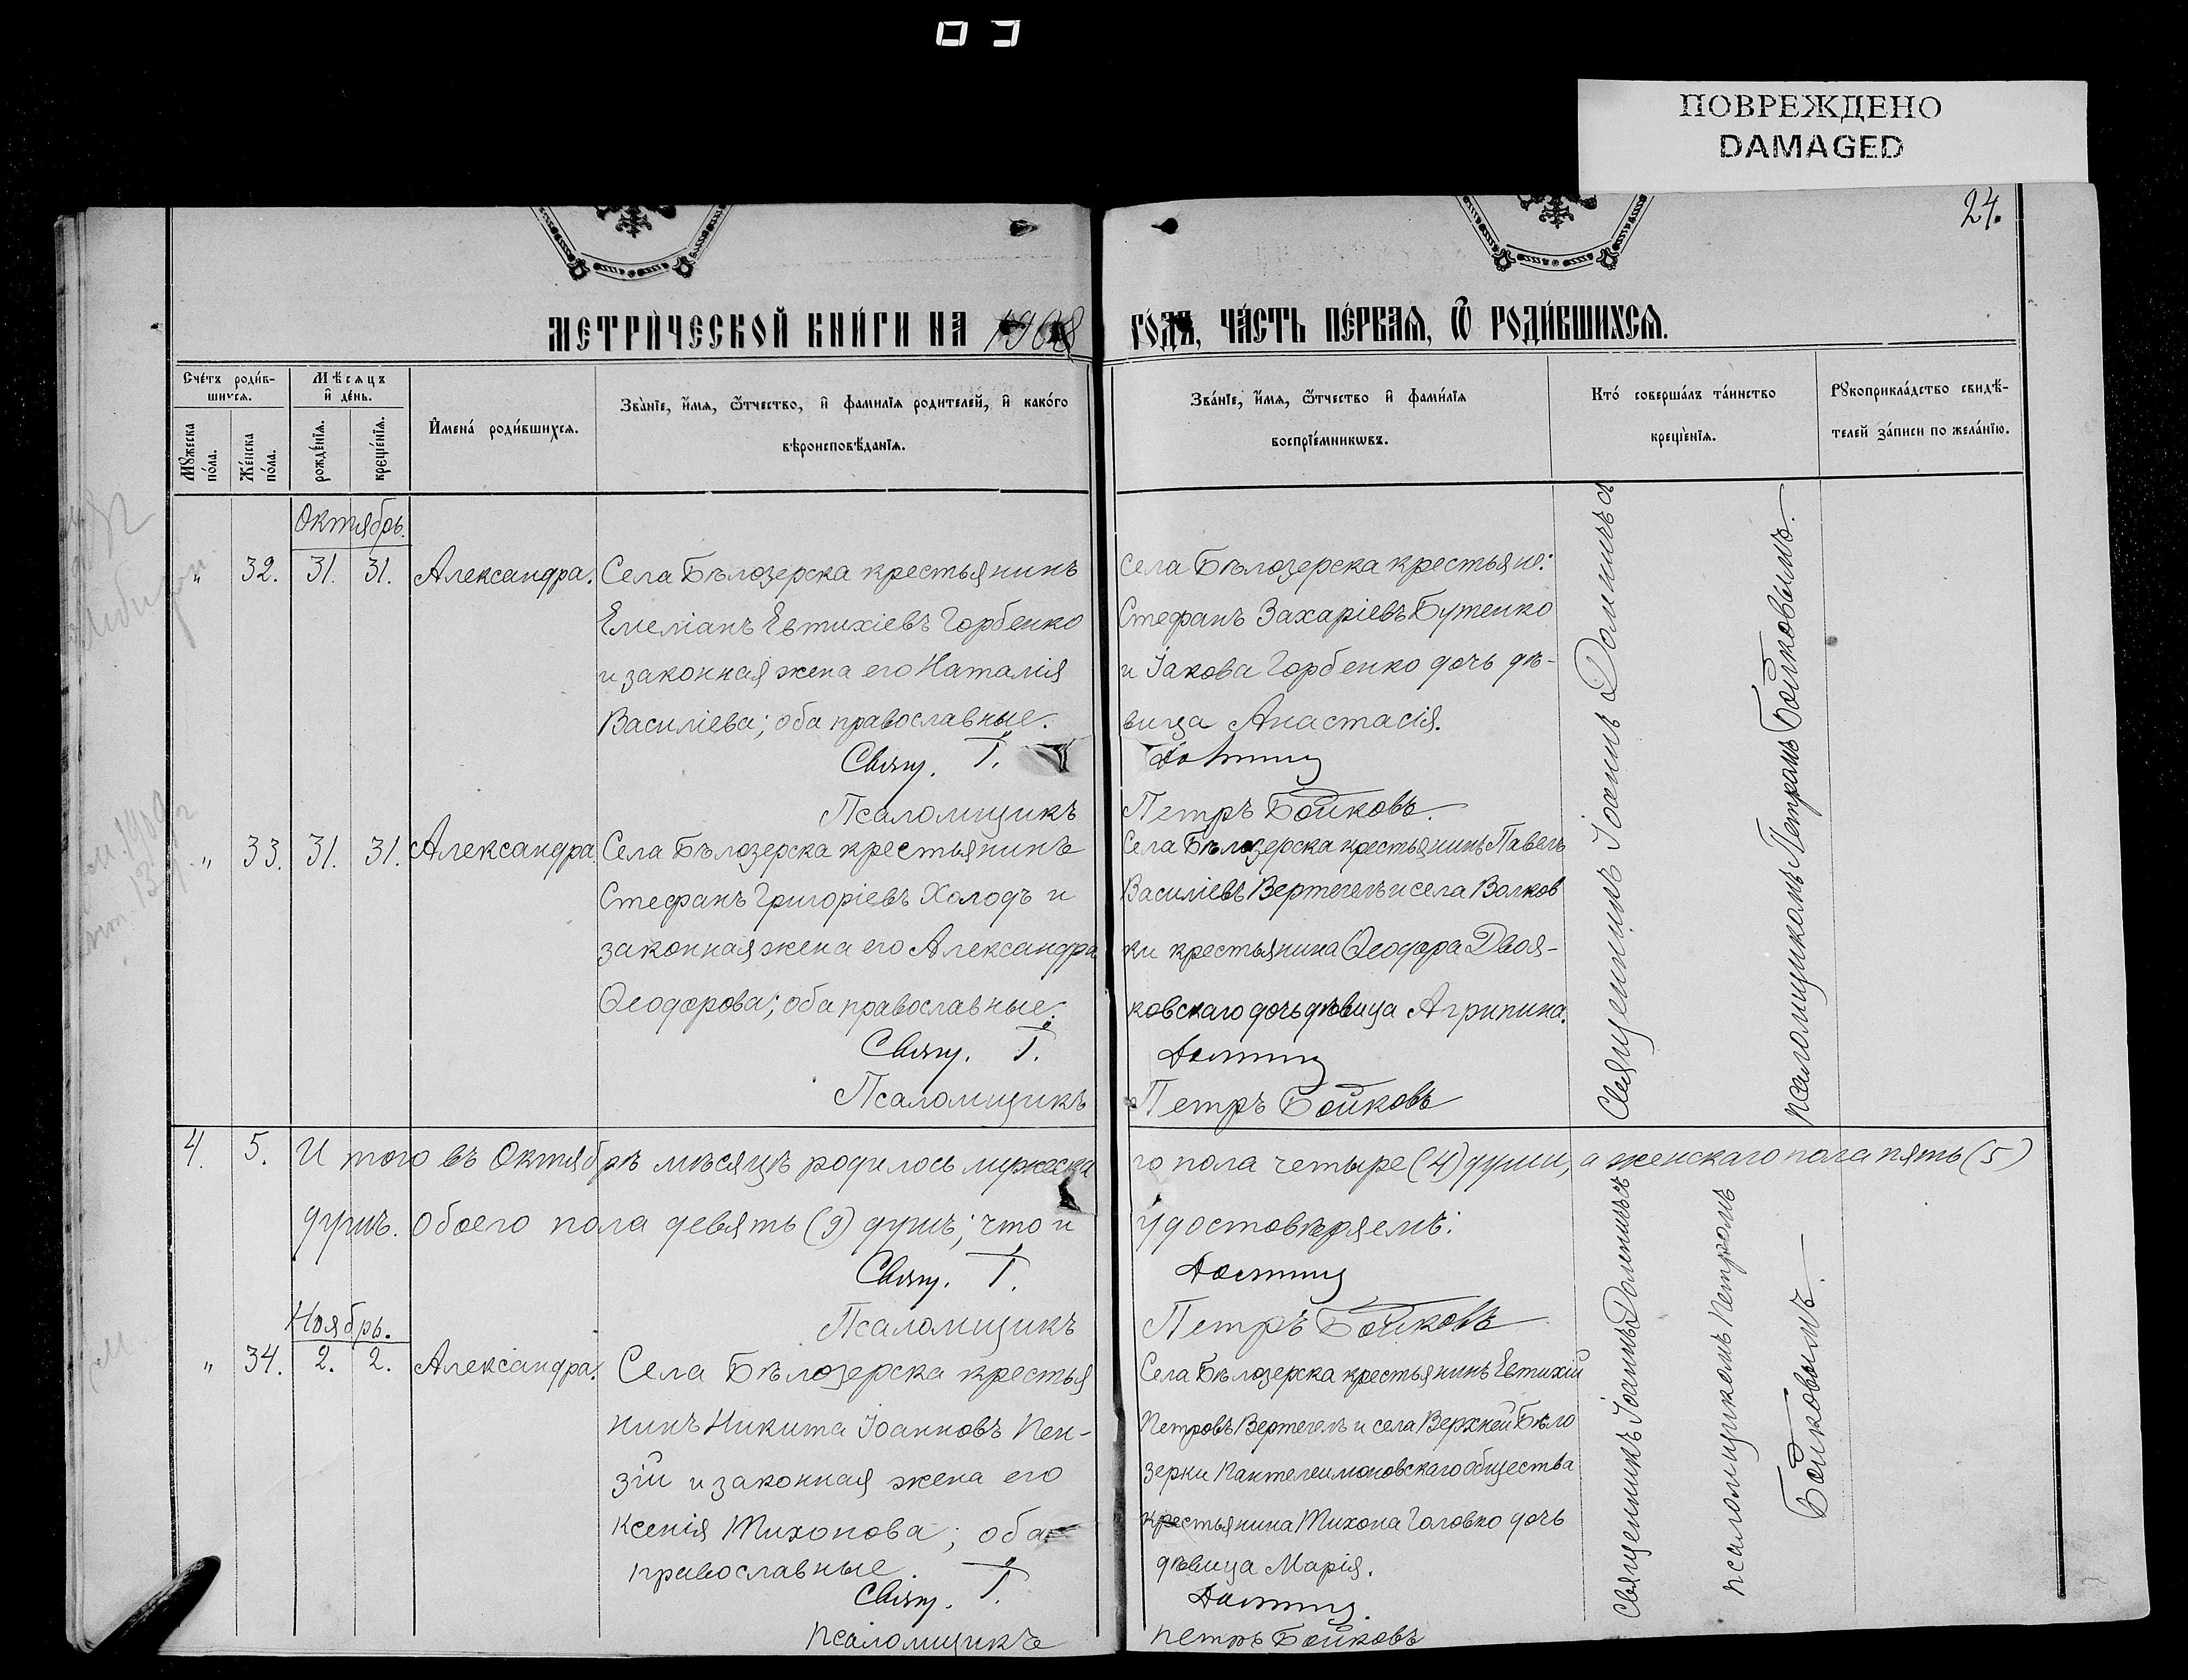 ПОВРЕЖДЕНО
DAMAGED
24.
МЕТРИ́ЧЕСКОЙ КНИ́ГИ НА 1908
ГО́ДЪ, ЧА́СТЬ ПЕ́РВАЯ, Ѿ РОДИ́ВШИХСЯ.
Сче́тъ роди́в-
шихся.
Му́жеска
по́ла.
Же́нска
по́ла.
Мѣсяцъ
и де́нь.
рожде́нїя.
креще́нїя.
Имена́ роди́вшихся.
Зва́нїе, и́мя, ѻ́тчество, и фами́лїя родителей, и како́го
вѣроисповѣ́данїя.
Зва́нїе, и́мя, ѻ́тчество и фами́лїя
воспрїе́мникѡвъ.
Кто́ соверша́лъ та́инство
креще́нїя.
Рукоприкла́дство свидѣ́-
телей за́писи по жела́нїю.
Октябрь.
" 32. 31. 31. Александра. Села Бѣлозерска крестьянинъ
Емеліанъ Евтихіевъ Горбенко
и законная жена его Наталія
Василіева; оба православные.
Свящ. І.
Псаломщикъ
Села Бѣлозерска крестьян:
Стефанъ Захаріевъ Бутенко
и Іакова Горбенко дочь дѣ-
вица Анастасія.
Петръ Бойковъ.
Священникъ Іоаннъ
псаломщикомъ Петромъ Бойковымъ.
" 33. 31. 31. Александра Села Бѣлозерска крестьянинъ
Стефанъ Григоріевъ Холодъ и
законная жена его Александра
Ѳеодорова; оба православные.
Свящ. І.
Псаломщикъ
Села Бѣлозерска крестьянинъ Павелъ
Василіевъ Вертегелъ и села Волков
ки крестьянина Ѳеодора Двоя-
ковскаго дочь дѣвица Агрипина.
Петръ Бойковъ
4. 5. И того въ Октябрѣ мѣсяцѣ родилось мужеска
го пола четыре (4) души, а женскаго пола пять (5)
душъ. Обоего пола девять (9) душъ; что и
удостовѣряемъ:
Свящ. І.
Псаломщикъ
Петръ Бойковъ
Ноябрь.
" 34. 2. 2. Александра. Села Бѣлозерска крестья
нинъ Никита Іоанновъ Пен-
зій и законная жена его
Ксенія Тихонова; оба
православные.
Свящ. І.
Псаломщикъ
Села Бѣлозерска крестьянинъ Евтихій
Петровъ Вертегелъ и села Верхней Бѣло
зерки Пантелеимоновскаго общества
крестьянина Тихона Головко дочь
дѣвица Марія.
Петръ Бойковъ
Священникъ Іоаннъ
псаломщикомъ Петромъ
Бойковымъ.